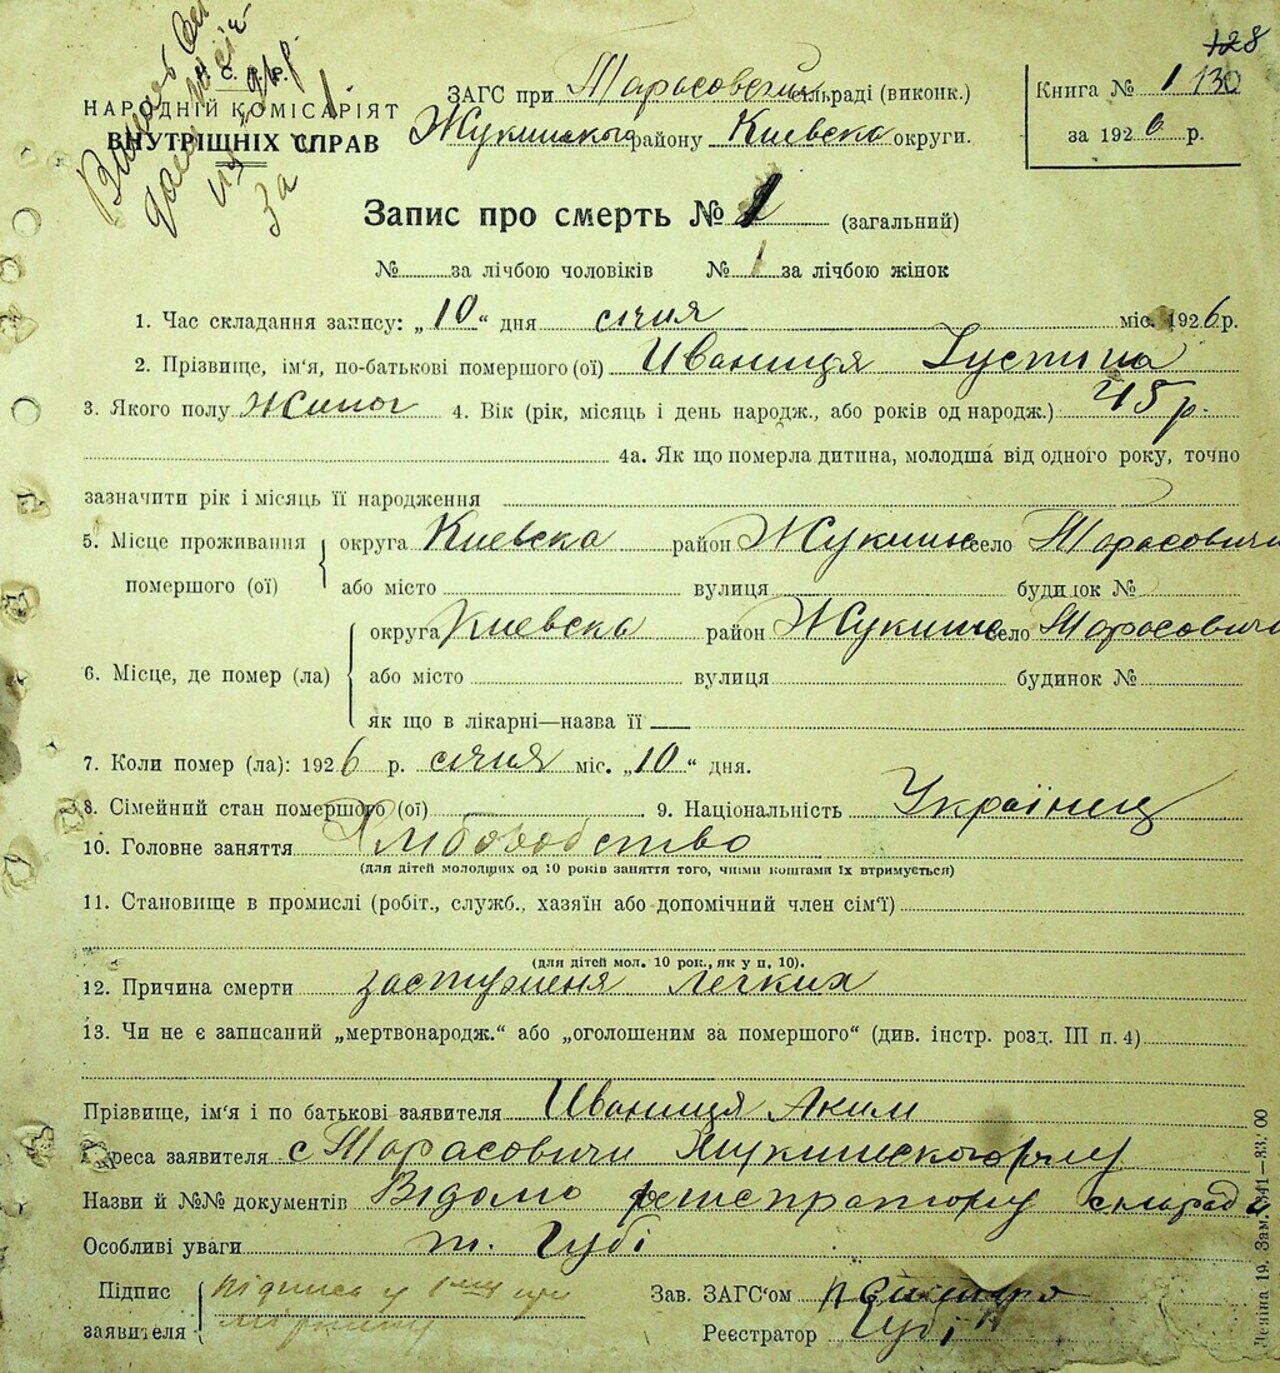 128
У. С. Р. Р.
НАРОДНІЙ КОМІСАРІЯТ
ВНУТРІШНІХ СПРАВ
ЗАГС при Тарасовской сельраді (виконк.)
Жукинского району Киевска округи.
Книга № 1 130
за 1926 р.
Запис про смерть № 1 (загальний)
№ за лічбою чоловіків № 1 за лічбою жінок
1. Час складання запису: „10“ дня січня міс. 1926 р.
2. Прізвище, ім'я, по-батькові помершого (ої) Иваниця Густина
3. Якого полу Жиног 4. Вік (рік, місяць і день народж., або років од народж.) 45 р.
4а. Як що померла дитина, молодша від одного року, точно
зазначити рік і місяць її народження
5. Місце проживання помершого (ої) округа Киевска район Жукинск село Тарасовичи
або місто вулиця будинок №
6. Місце, де помер (ла) округа Киевска район Жукинск село Тарасовичи
або місто вулиця будинок №
як що в лікарні—назва її
7. Коли помер (ла): 1926 р. січня міс. „10“ дня.
8. Сімейний стан помершого (ої) 9. Національність Українец
10. Головне заняття Хліборобство
(для дітей молодших од 10 років заняття того, чиїми коштами їх втримується)
11. Становище в промислі (робіт., служб., хазяїн або допомічний член сім'ї)
(для дітей мол. 10 рок., як у п. 10).
12. Причина смерти застуженя легких
13. Чи не є записаний „мертвонародж.“ або „оголошеним за помершого“ (див. інстр. розд. III п. 4)
Прізвище, ім'я і по батькові заявителя Иваниця Аким
Адреса заявителя с Тарасовичи Жукинского рну
Назви й №№ документів Відомо регистратору сельради
Особливі уваги т. Губі
Підпис заявителя Зав. ЗАГС'ом
Реєстратор Губі